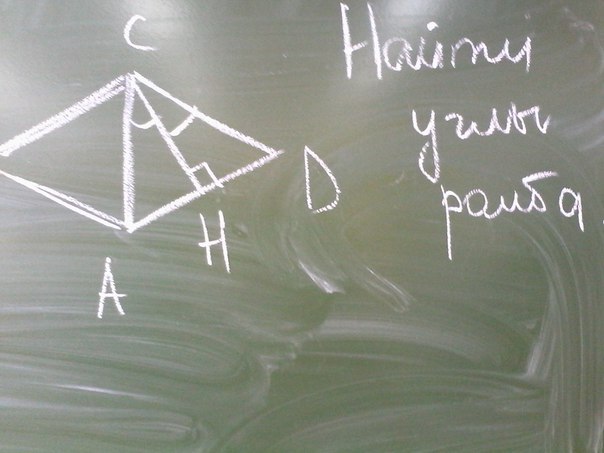 C
Найти
углы
ромба.
D
H
A